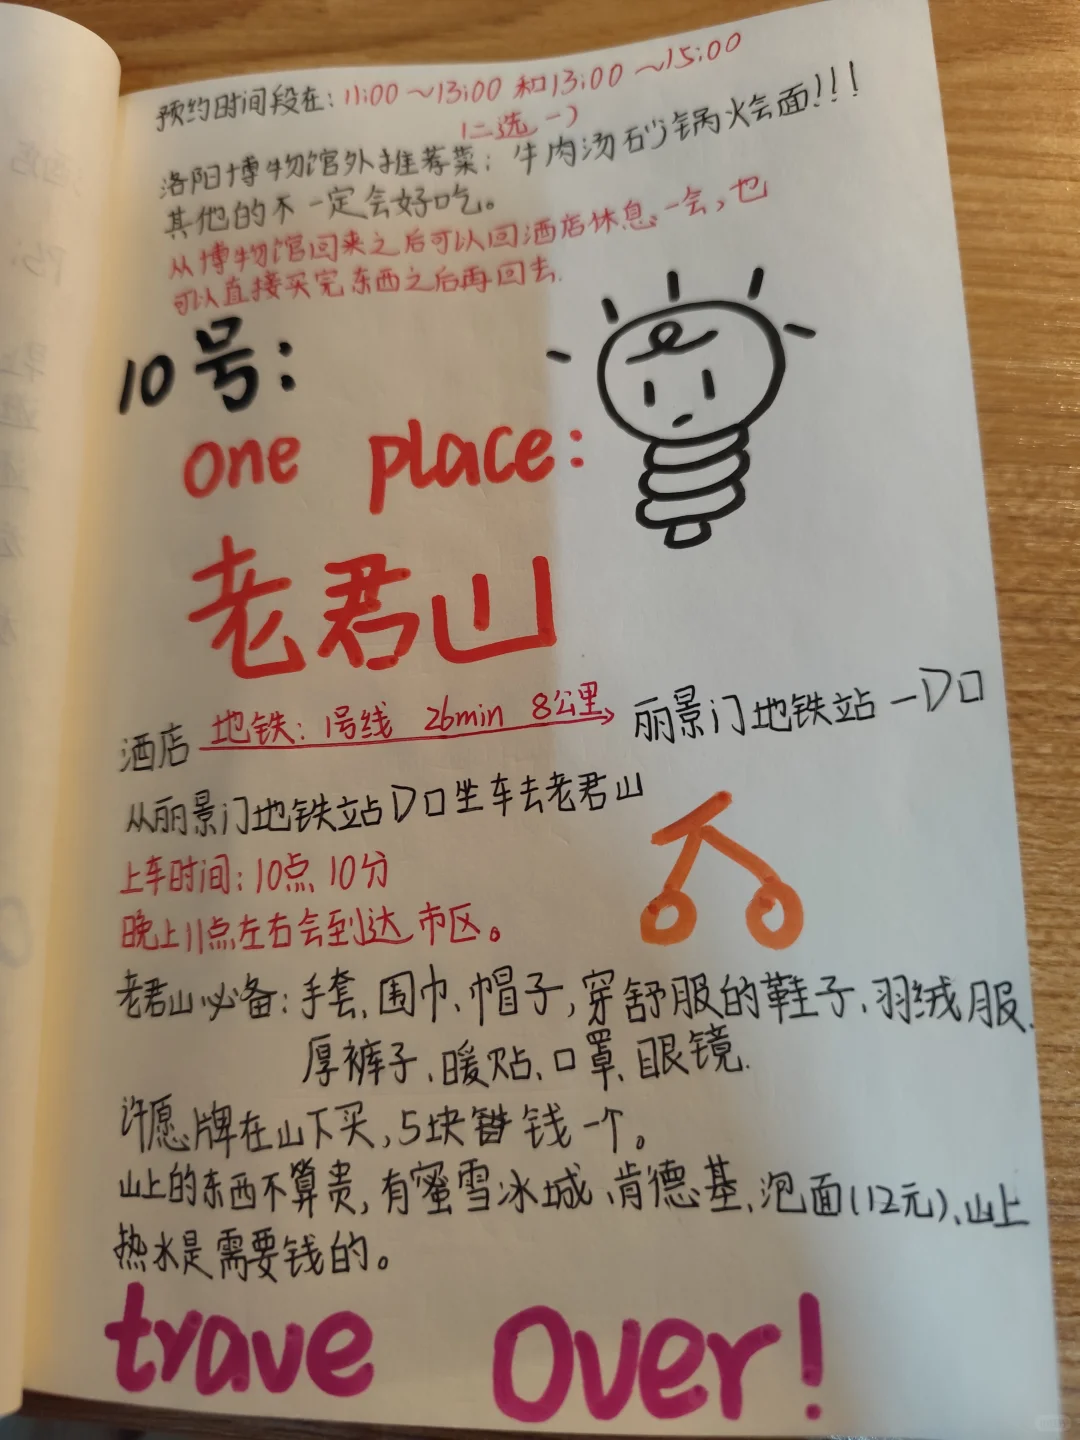 预约时间段在：11:00～13:00 和13:00～15:00
(二选一)
洛阳博物馆外推荐菜：牛肉汤砂锅火会面!!!
其他的不一定会好吃。
从博物馆回来之后可以回酒店休息一会，也
可以直接买完东西之后再回去.
10号：
one place：
老君山
酒店 地铁：1号线 26min 8公里 丽景门地铁站一D口
从丽景门地铁站D口坐车去老君山
上车时间：10点10分
晚上11点左右会到达市区。
老君山必备：手套、围巾、帽子，穿舒服的鞋子、羽绒服、
厚裤子、暖贴、口罩、眼镜.
许愿牌在山下买，5块钱一个。
山上的东西不算贵，有蜜雪冰城、肯德基、泡面(12元)、山上
热水是需要钱的。
trave Over!